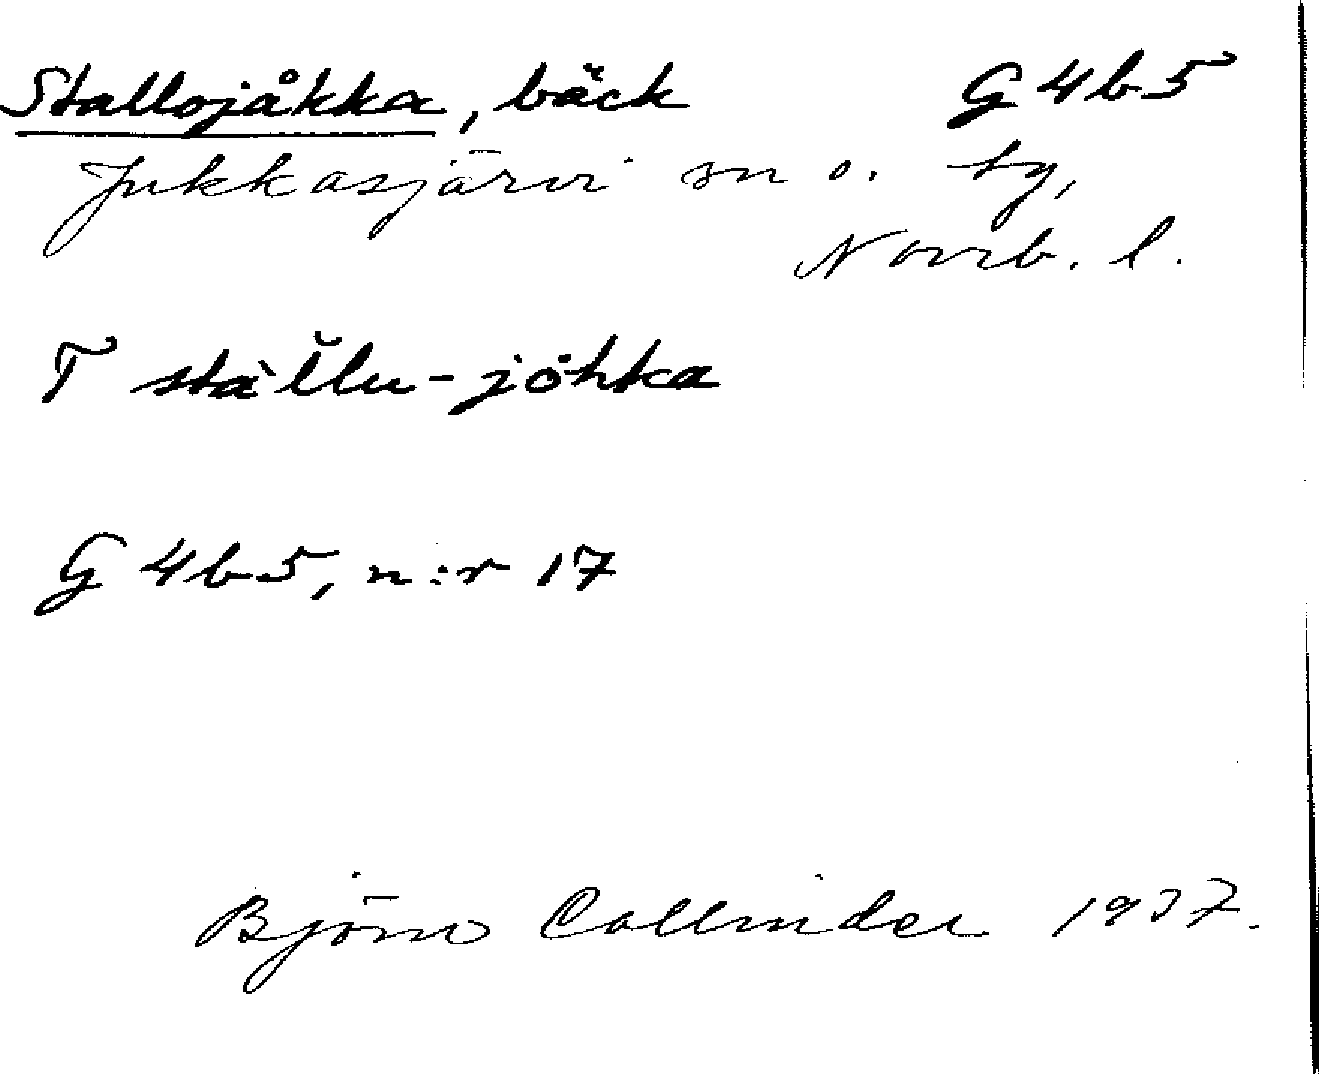 Stallojåkka, bäck G 4 b 5
Jukkasjärvi sn o. ty,
Norrb. l.
T stàl̆lu-jȯhka
G 4 b 5, n:r 17
Björn Collinder 1937.